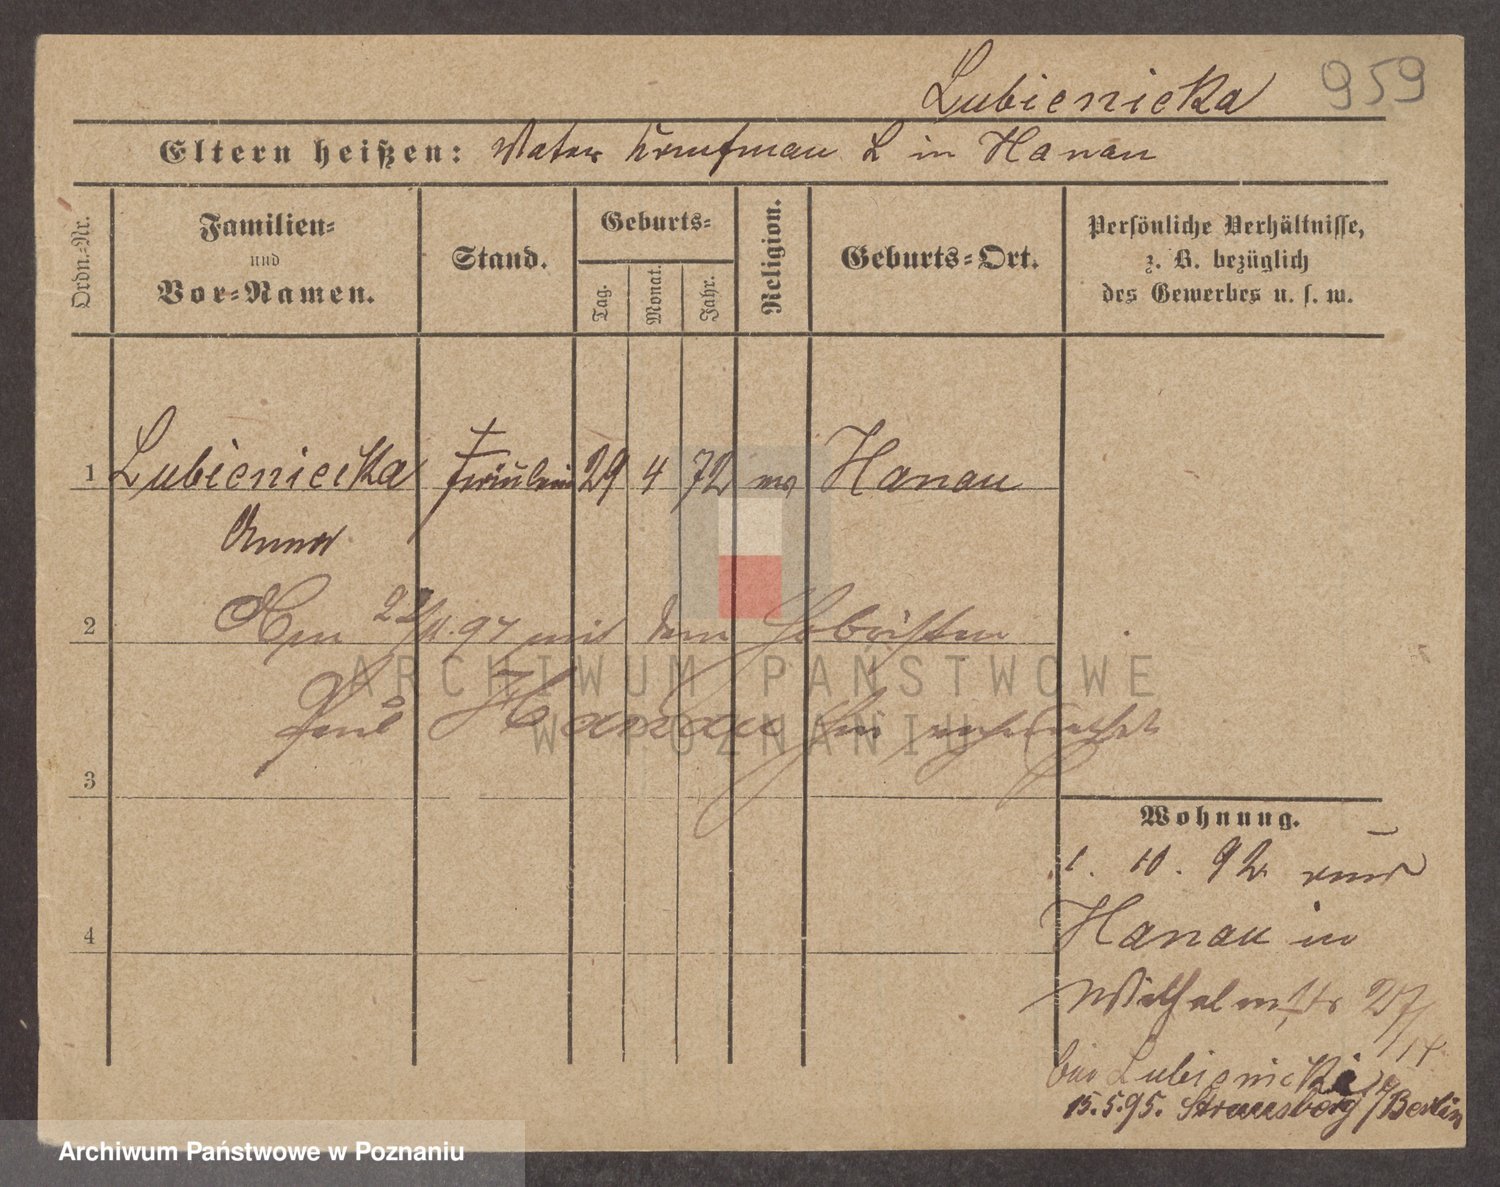 Lubienicka 959
Eltern heißen: Vater Kaufmann L in Hanau
Ordn.-Nr.
Familien-
und
Vor-Namen.
Stand.
Geburts-
Tag.
Monat.
Jahr.
Religion.
Geburts-Ort.
Persönliche Verhältnisse,
z. B. bezüglich
des Gewerbes u. s. w.
1 Lubieniecka Fräulein 29 4 72 Hanau
Anna
2 Am 22/11.97 mit dem
Paul Hanau hier verheirathet
3
Wohnung.
1. 10. 92 von
Hanau in
4
Wilhelmstr 27/
bei Lubienicki
15.5.95. Strausberg / Berlin
ARCHIWUM PAŃSTWOWE
W POZNANIU
Archiwum Państwowe w Poznaniu